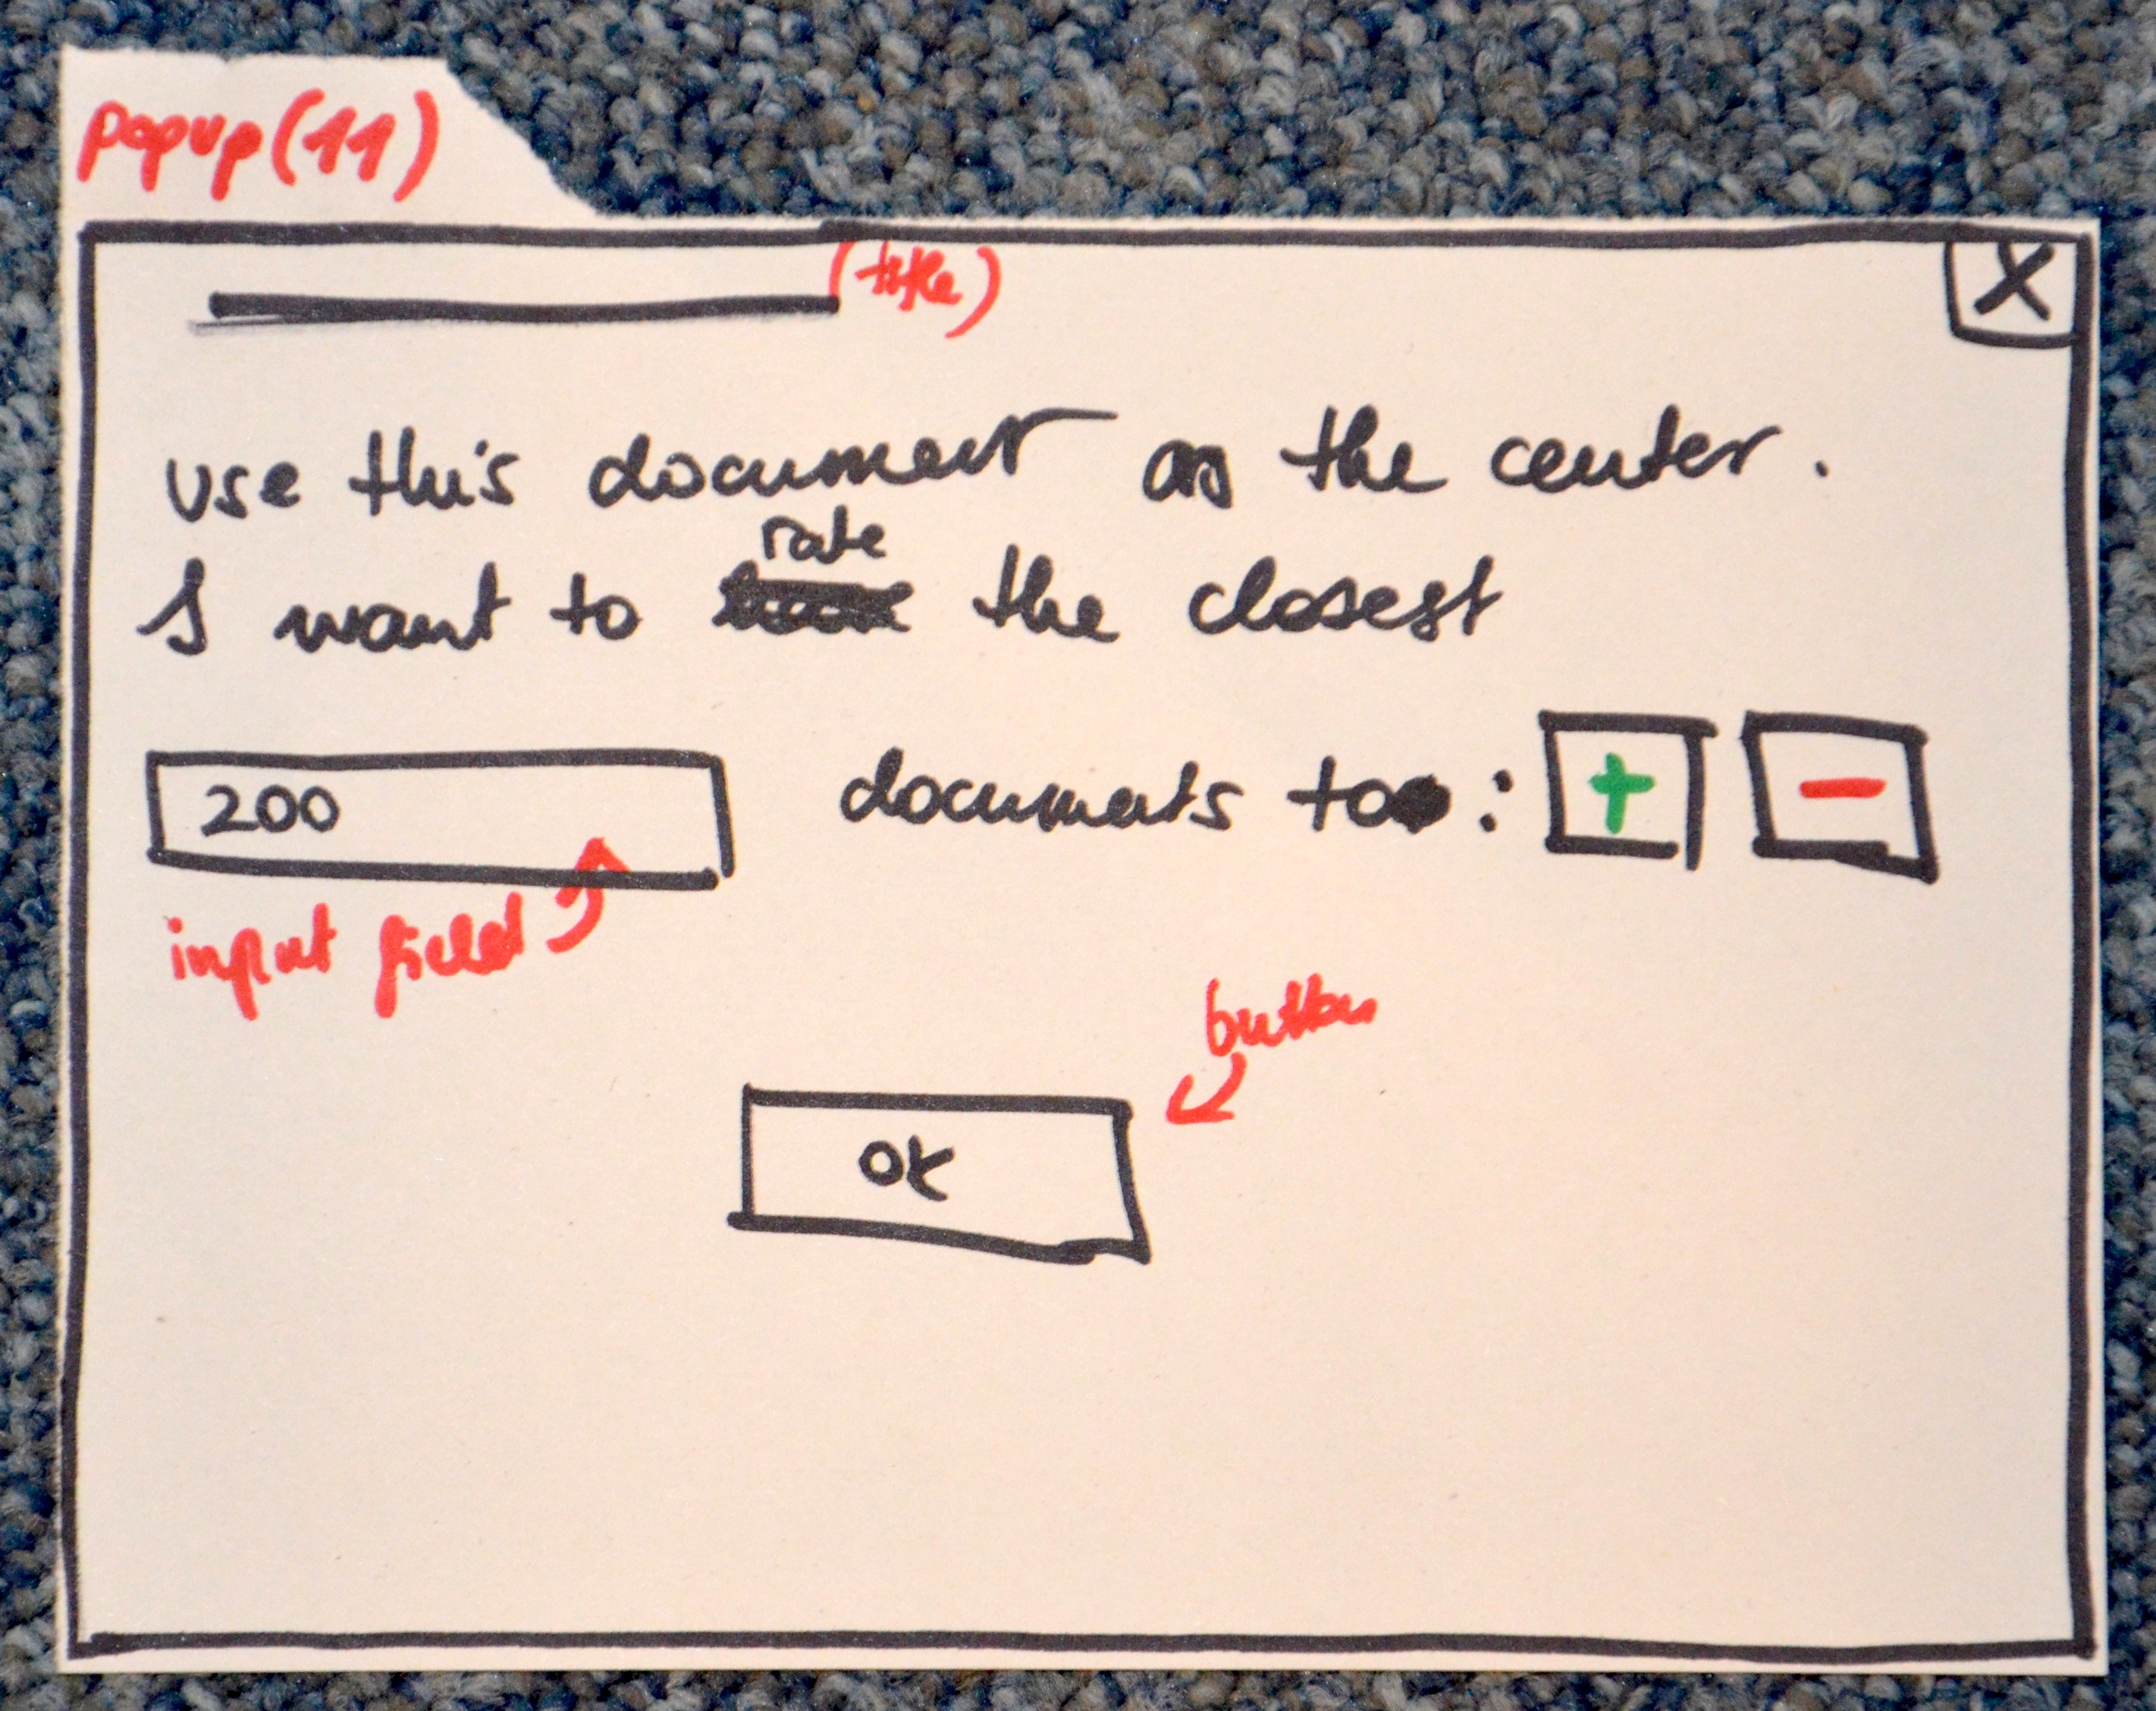 popup(11)
(title)
X
use this document as the center.
rate
I want to the closest
200 documents to : + -
input field
button
OK